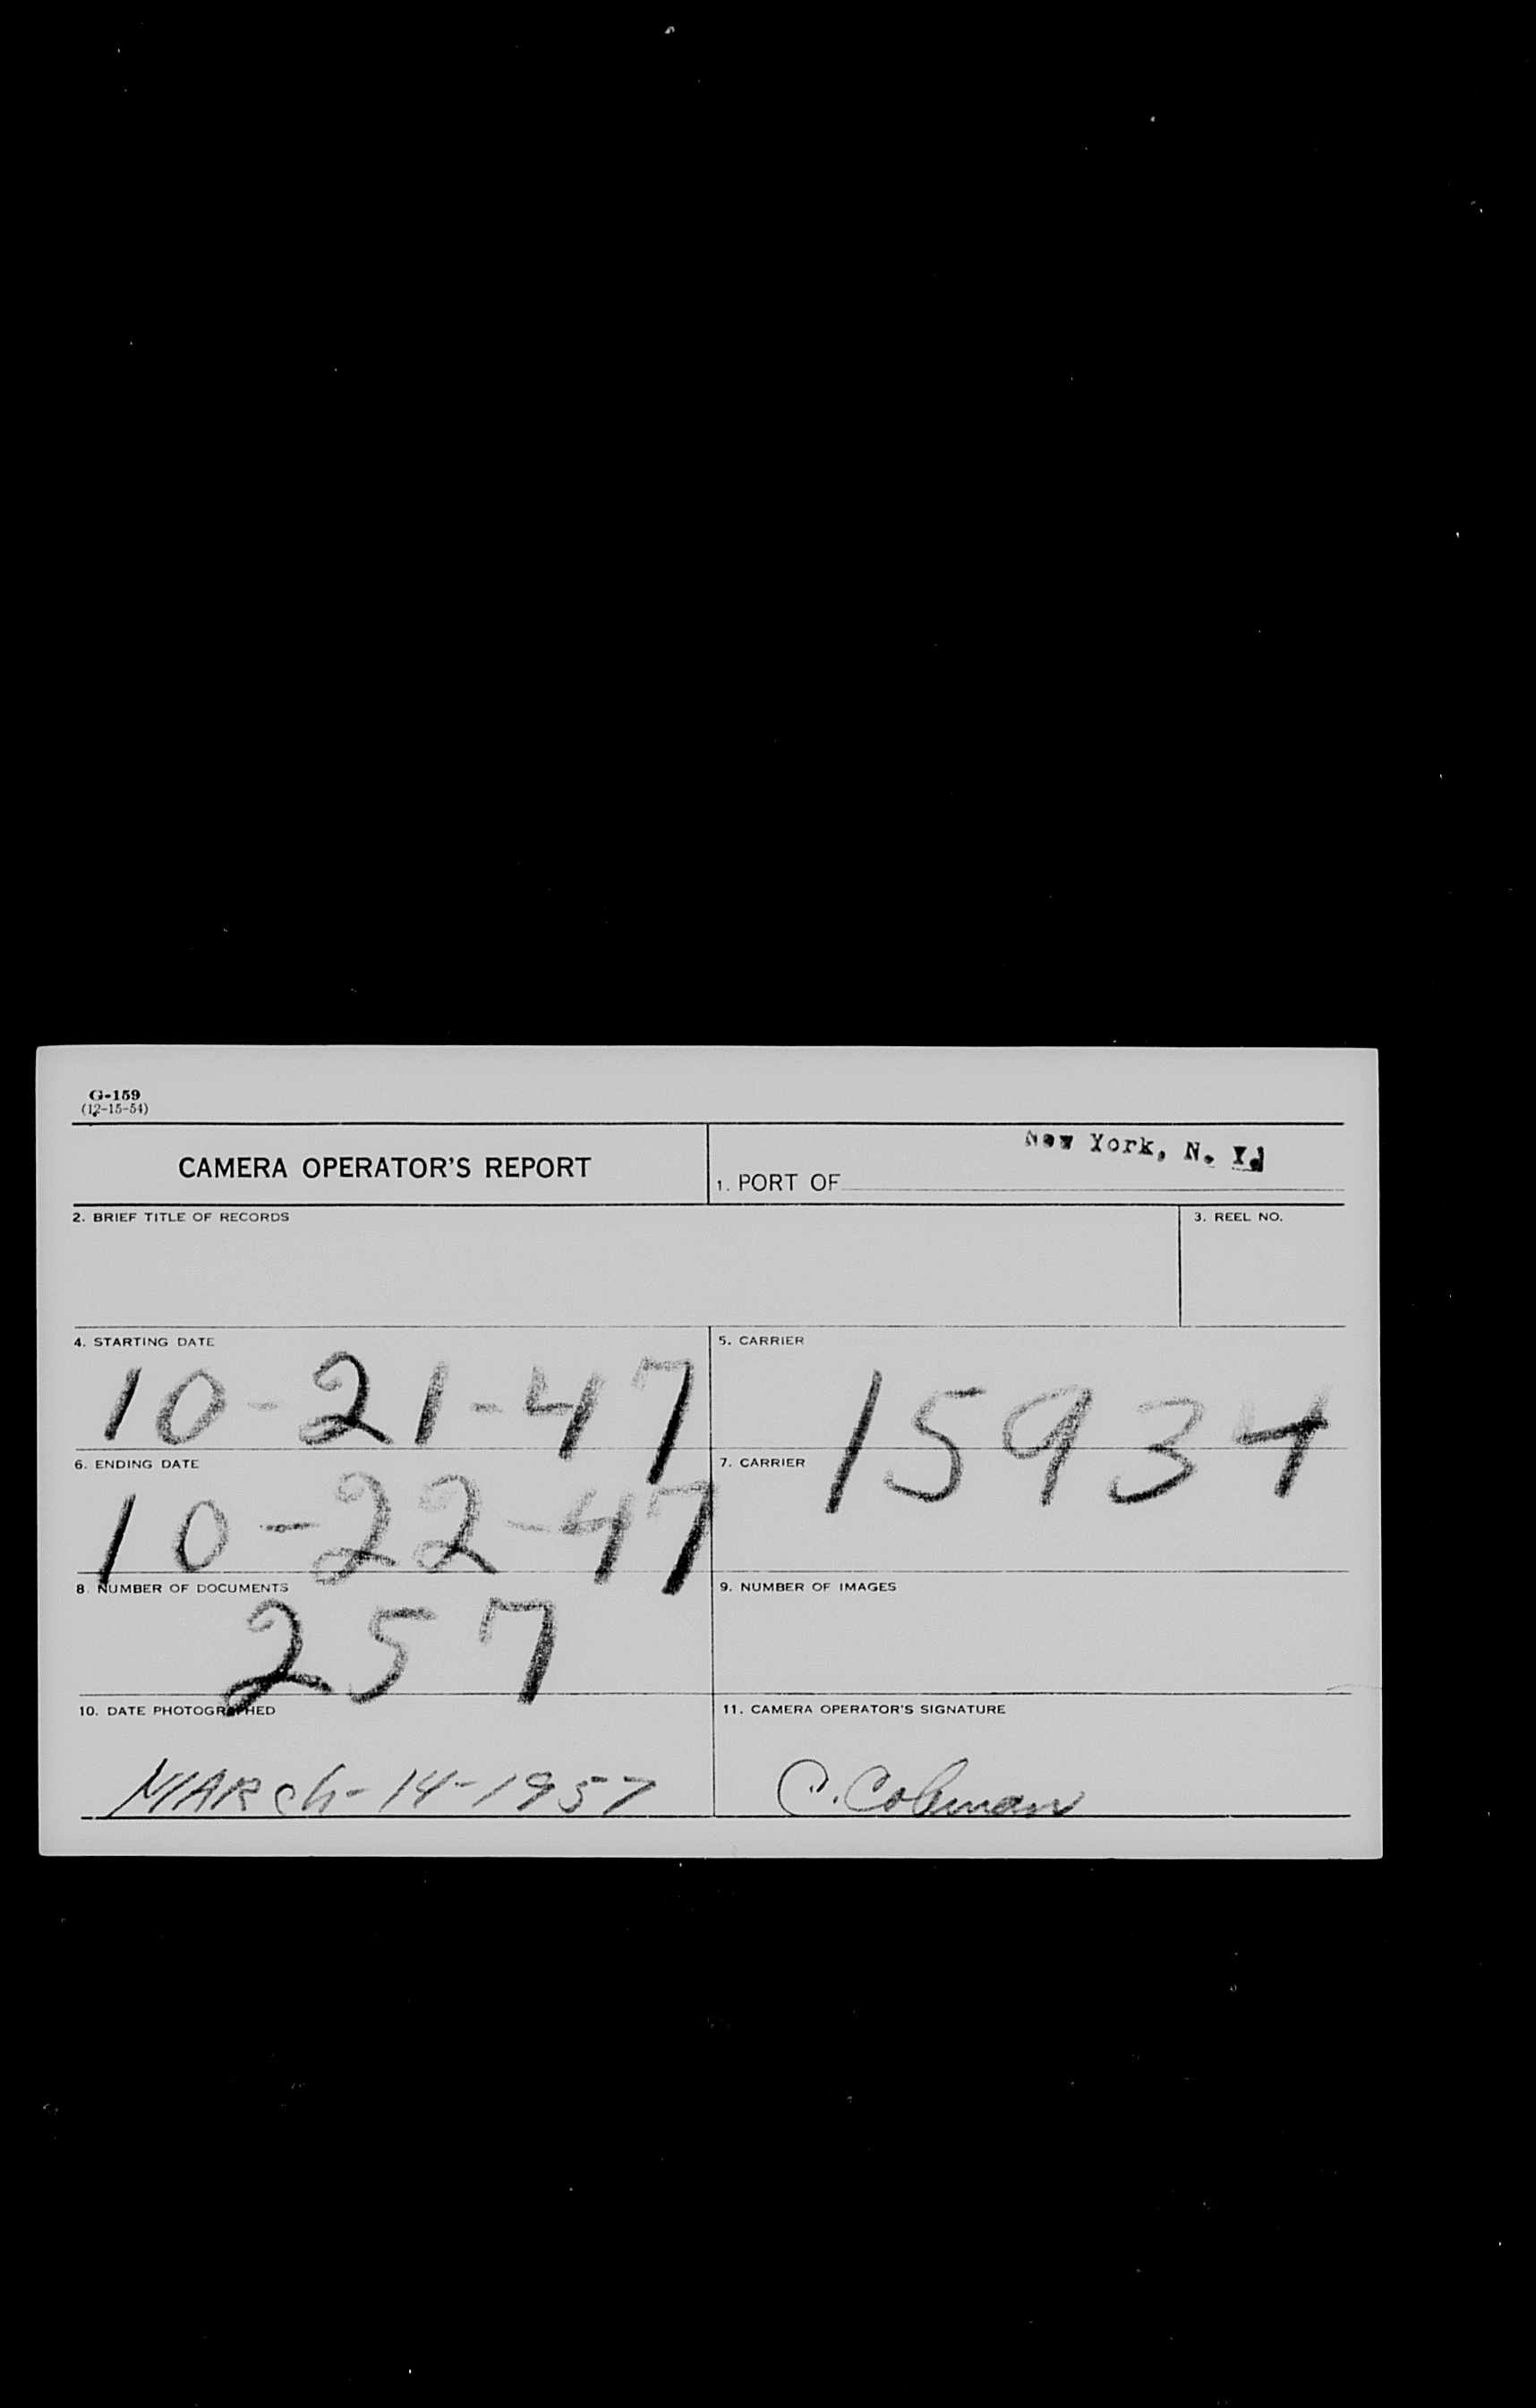 G-159
(12-15-54)
CAMERA OPERATOR'S REPORT
1. PORT OF New York, N. Y.
2. BRIEF TITLE OF RECORDS
3. REEL NO.
4. STARTING DATE
10-21-47
5. CARRIER
15934
6. ENDING DATE
10-22-47
7. CARRIER
8. NUMBER OF DOCUMENTS
257
9. NUMBER OF IMAGES
10. DATE PHOTOGRAPHED
MARch-14-1957
11. CAMERA OPERATOR'S SIGNATURE
C. Coleman